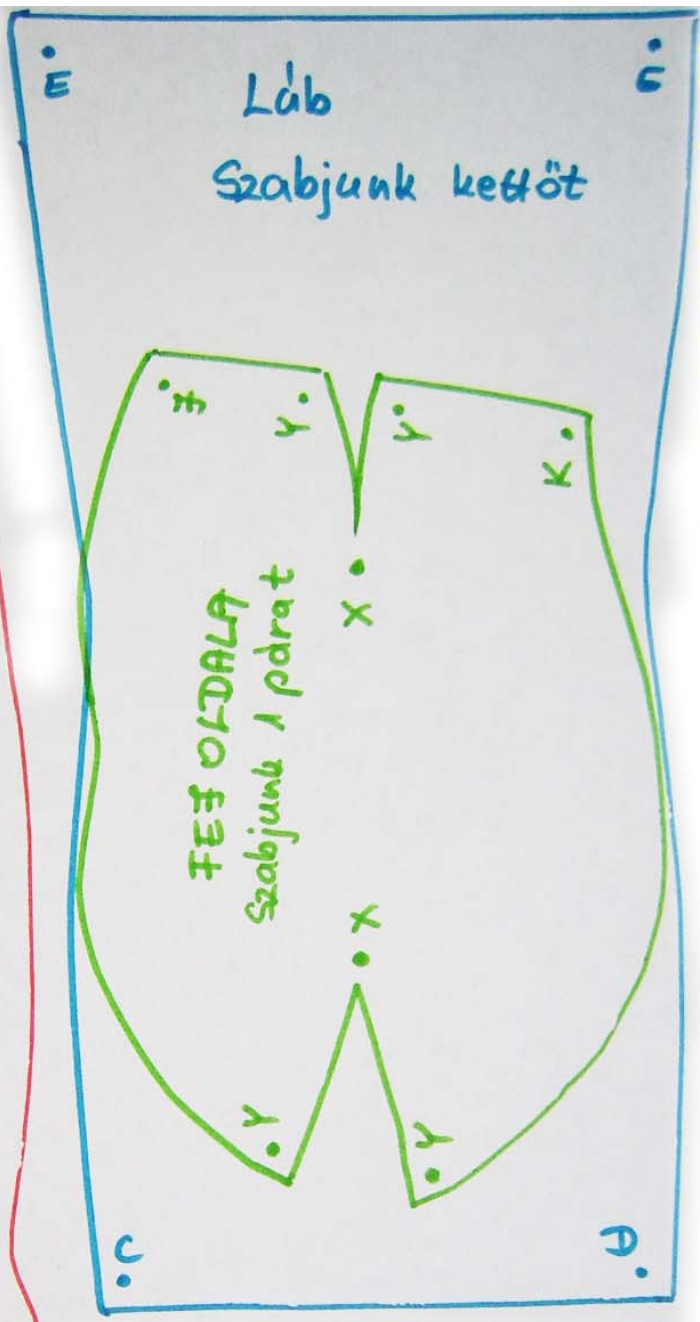 E
G
Láb
Szabjunk kettőt
J
Y
Y
K
X
FEJ OLDALA
Szabjunk 1 párat
X
Y
Y
C
D